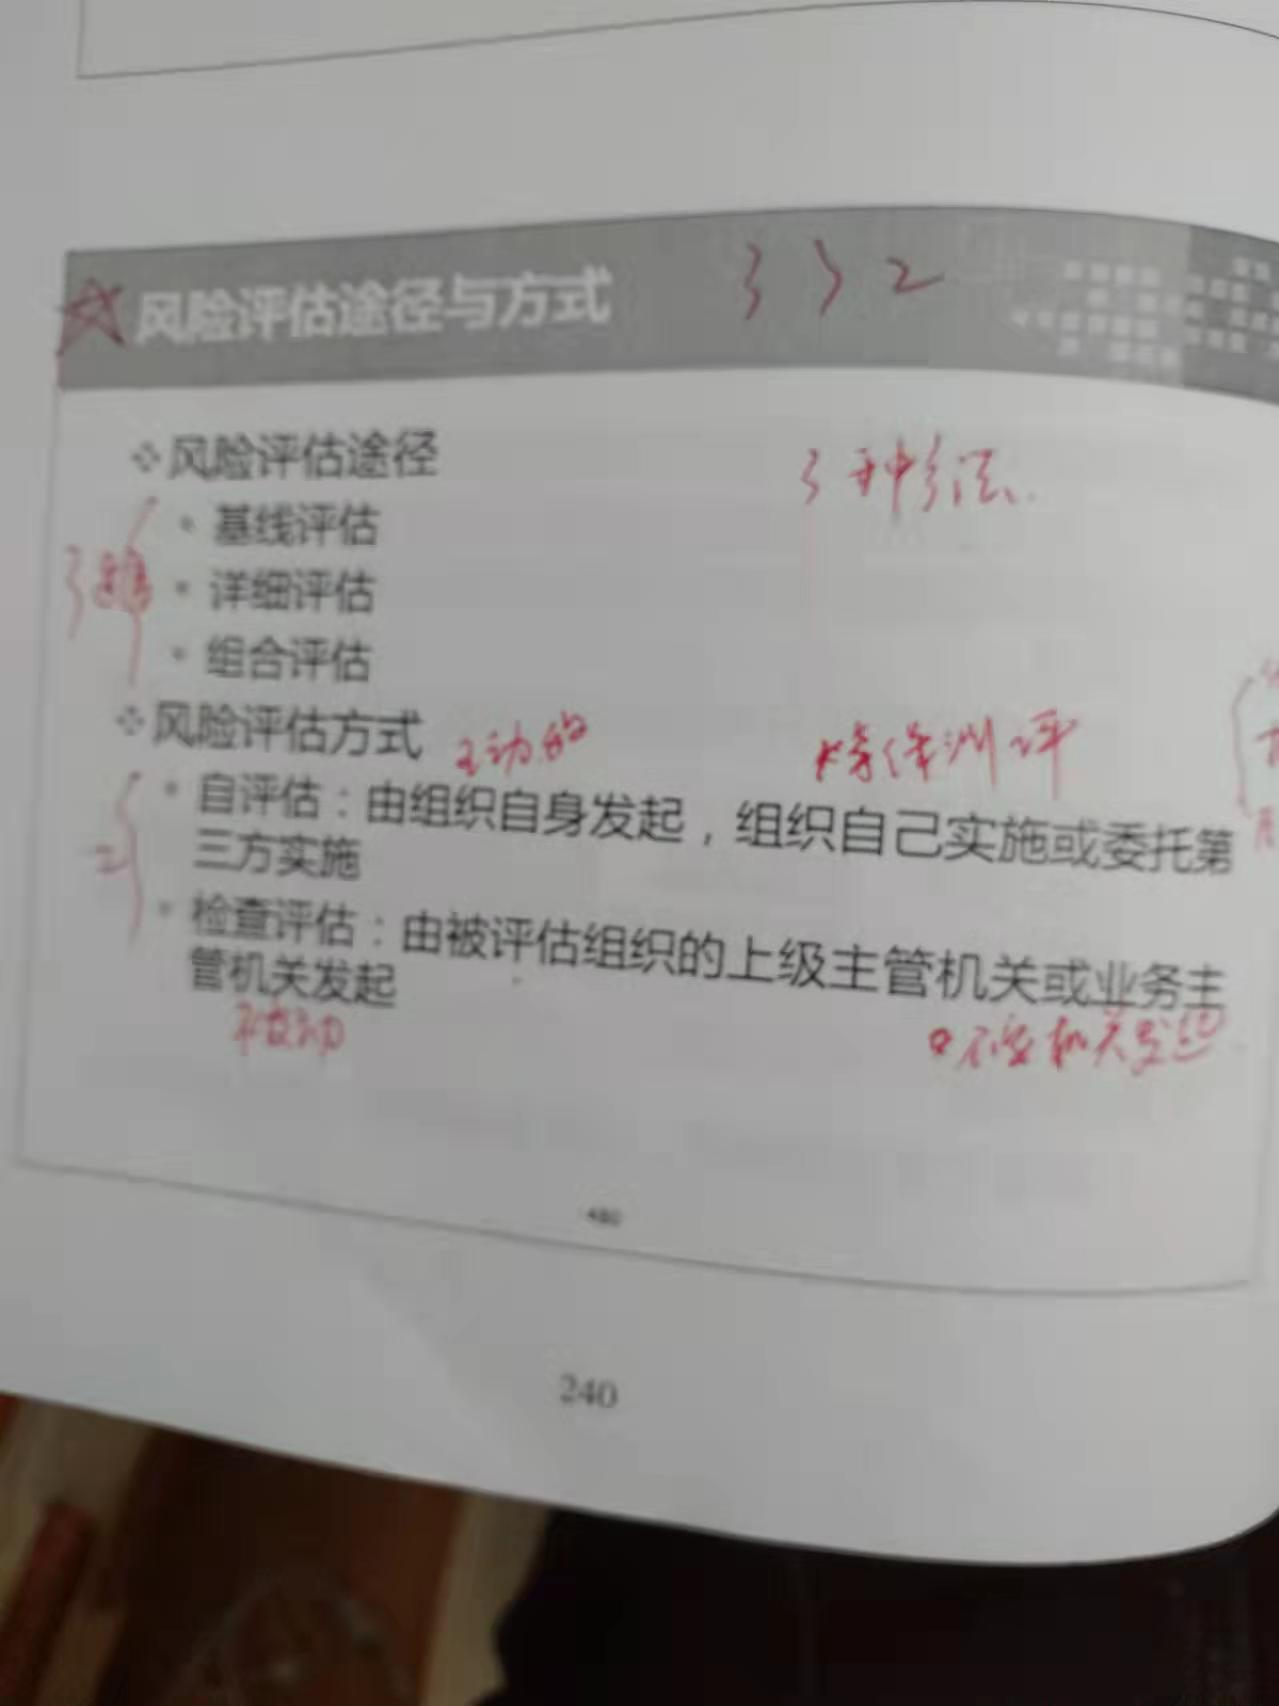 风险评估途径与方式 3 3 2
❖风险评估途径
3种方法
• 基线评估
• 详细评估
• 组合评估
❖风险评估方式 主动的
• 自评估：由组织自身发起，组织自己实施或委托第
三方实施
二
• 检查评估：由被评估组织的上级主管机关或业务主
管机关发起
被动
480
240